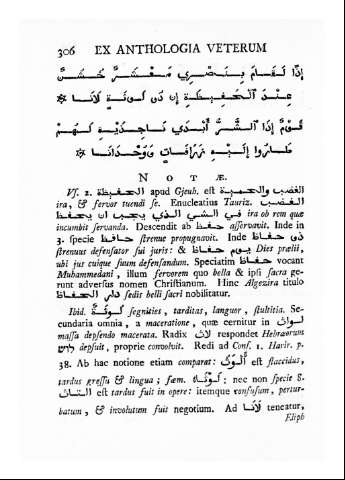 306 EX ANTHOLOGIA VETERUM
إذًا لَقَامَ بِنَصْرِي مَعْشَرٌ خُشُنٌ
عِنْدَ الْحَفِيظَةِ إِنْ ذُو لُوثَةٍ لَانَا
قَوْمٌ إِذَا الشَّرُّ أَبْدَي نَاجِذَيْهِ لَهُمْ
طَارُوا إِلَيْهِ زَرَافَاتٍ وَوُحْدَانَا
NOTÆ.
Vs. 2. الحفيظة apud Gjeuh. est الغضب والحمية
ira, & fervor tuendi se. Enucleatius Tauriz. الغضب
في الشي الذي يجب ان يحفظ ira ob rem quæ
incumbit servanda. Descendit ab حفظ asservavit. Inde in
3. specie حافظ strenue propugnavit. Inde ذو حفاظ
strenuus defensator sui juris: & يوم حفاظ Dies prælii,
ubi jus cuique suum defensandum. Speciatim حفاظ vocant
Muhammedani, illum fervorem quo bella & ipsi sacra ge-
runt adversus nomen Christianum. Hinc Algezira titulo
دار الحفاظ sedis belli sacri nobilitatur.
Ibid. لوثة segnities, tarditas, languor, stultitia. Se-
cundaria omnia, a maceratione, quæ cernitur in لواث
massa depsendo macerata. Radix لاث respondet Hebræorum
לוש depsuit, proprie convolvit. Redi ad Cons. 1. Harir. p.
38. Ab hac notione etiam comparat: ألوث est flaccidus,
tardus gressu & lingua; fæm. لوثا; nec non specie 8.
التاث est tardus fuit in opere: itemque confusum, pertur-
batum, & involutum fuit negotium. Ad لانا teneatur,
Eliph